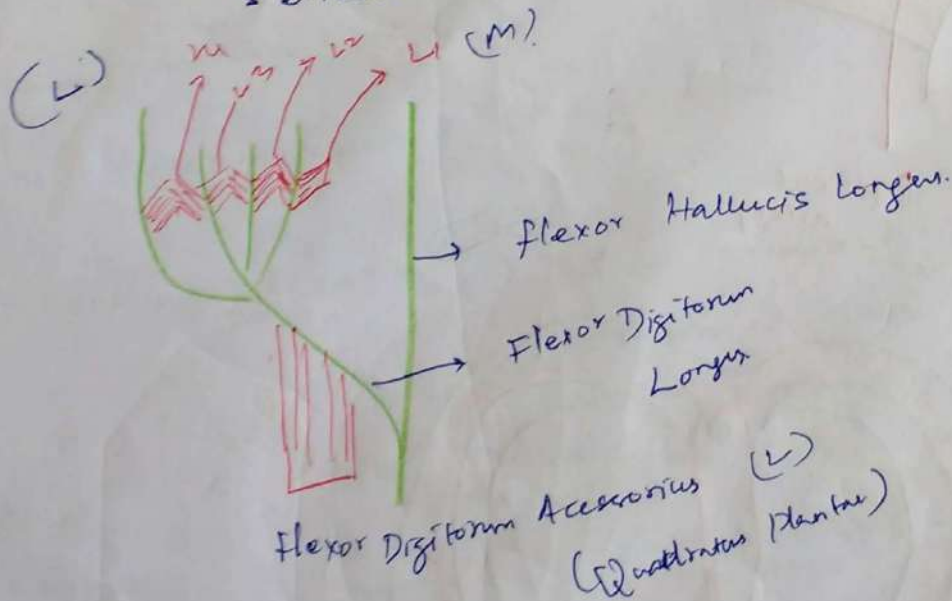 (L)
L2
L1 (M).
flexor Hallucis Longus.
Flexor Digitorum
Longus
Flexor Digitorum Acessorius (L)
(Quadratus Plantae)